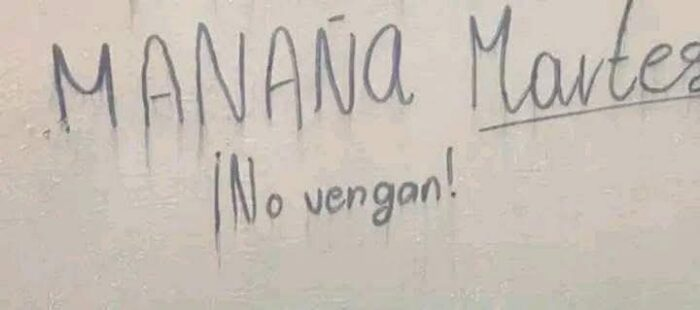 MANAÑA Martes
¡No vengan!